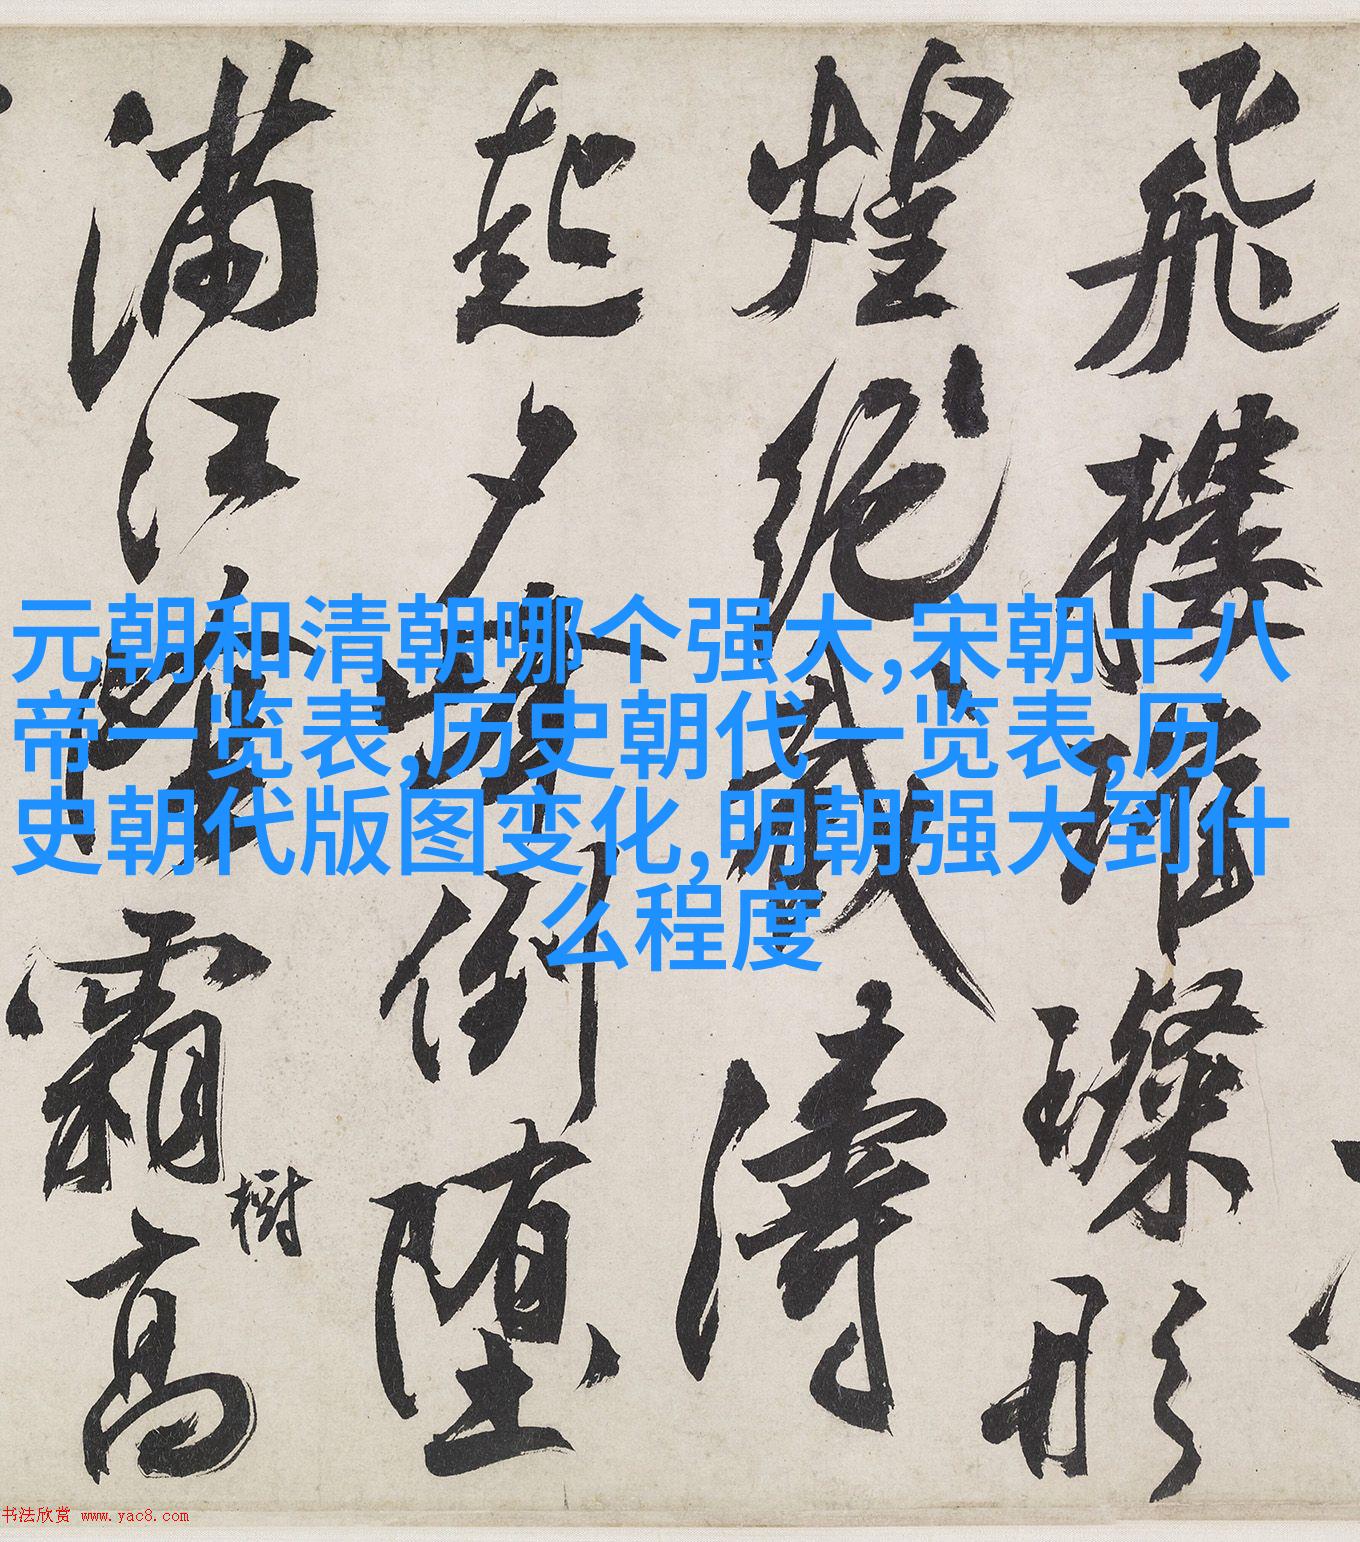 元朝和清朝哪个强大,宋朝十八
帝一览表,历史朝代一览表,历
史朝代版图变化,明朝强大到什
么程度
飛樓璀璨彤
煌絶濤
起夕倒墮
滿江霜高
樹
书法欣赏 www.yac8.com